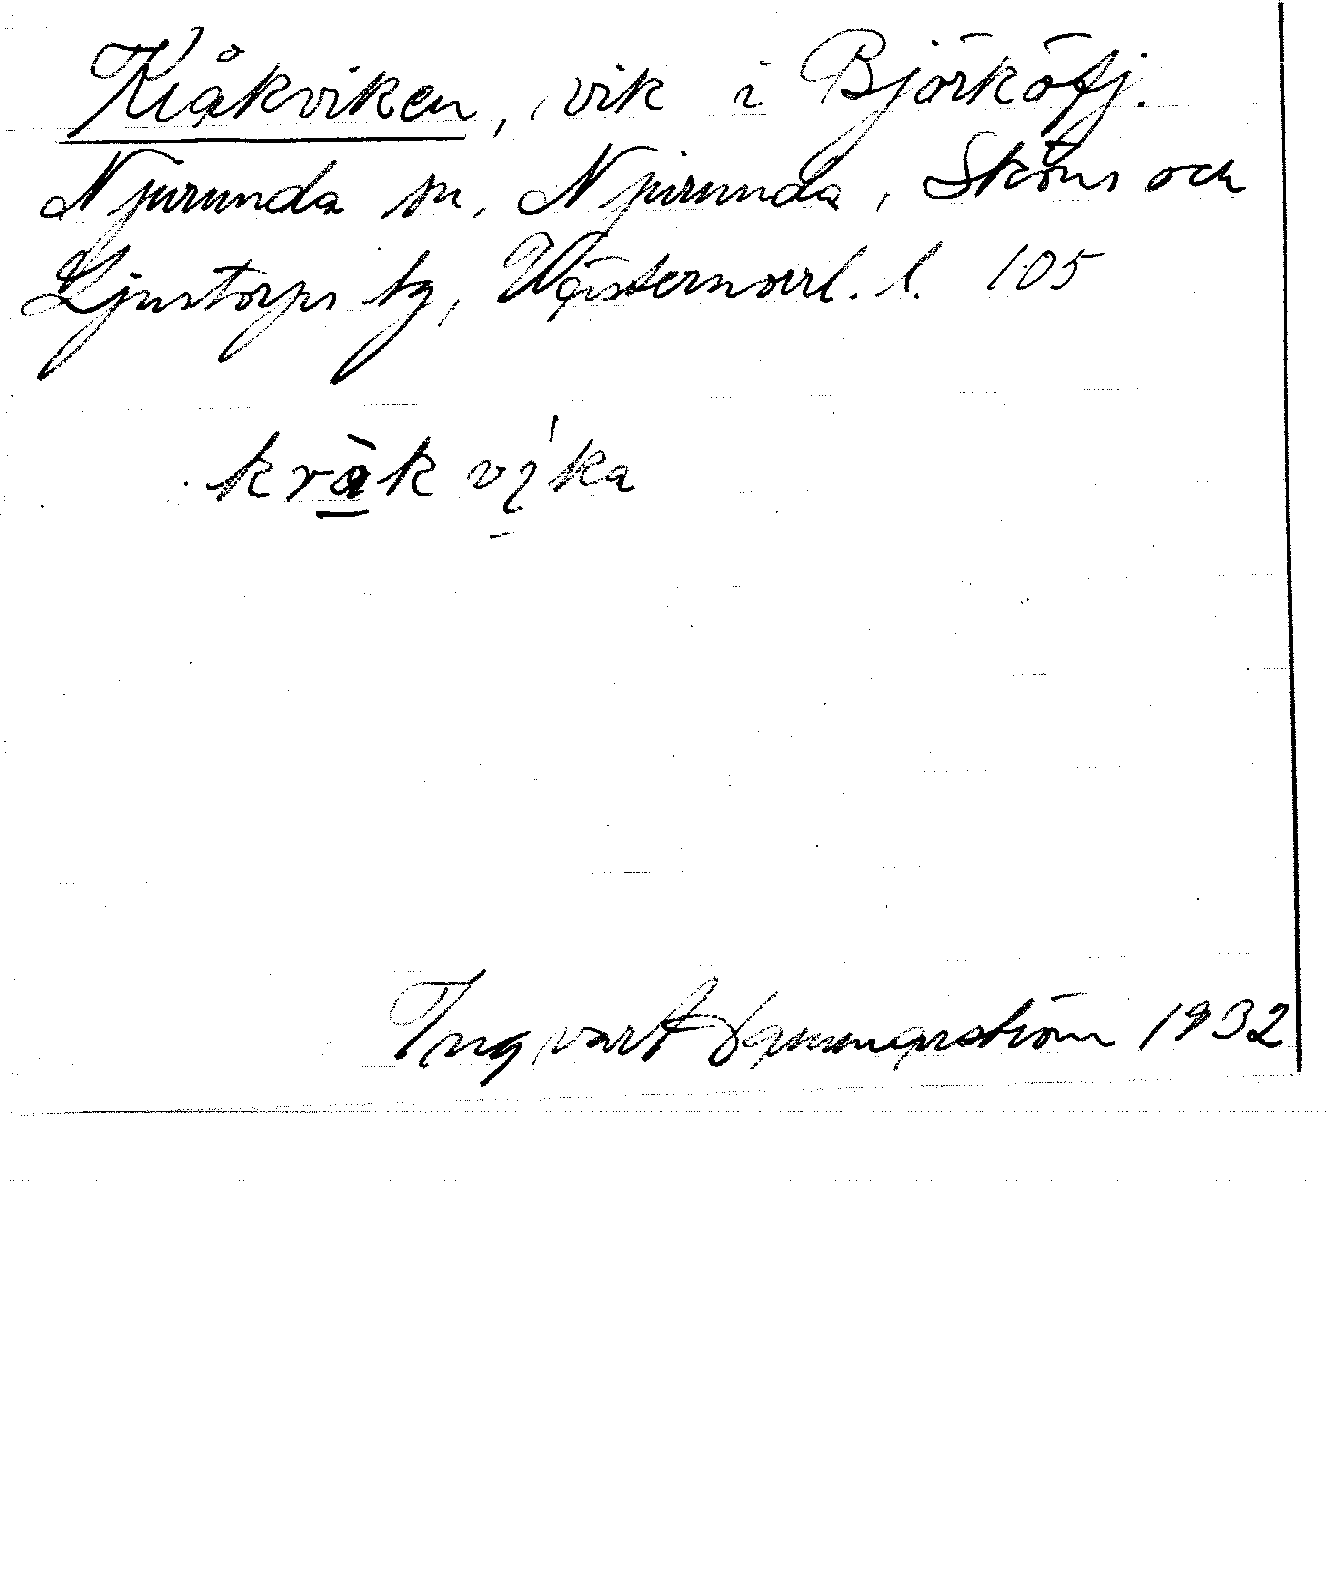 Kråkviken, vik i Björköfj.
Njurunda sn, Njurunda, Sköns och
Ljustorps tg, Västernorrl. l. 105
kråkvika
Ingvart 1932